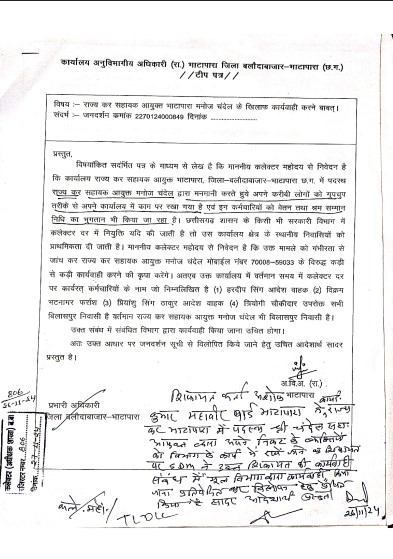 कार्यालय अनुविभागीय अधिकारी (रा.) भाटापारा जिला बलौदाबाजार–भाटापारा (छ.ग.)
//टीप पत्र//
विषय :– राज्य कर सहायक आयुक्त भाटापारा मनोज चंदेल के खिलाफ कार्यवाही करने बाबत्।
संदर्भ :– जनदर्शन क्रमांक 2270124000849 दिनांक ......................
प्रस्तुत,
विषयांकित संदर्भित पत्र के माध्यम से लेख है कि माननीय कलेक्टर महोदय से निवेदन है
कि कार्यालय राज्य कर सहायक आयुक्त भाटापारा, जिला–बलौदाबाजार–भाटापारा छ.ग. में पदस्थ
राज्य कर सहायक आयुक्त मनोज चंदेल द्वारा मनमानी करते हुये अपने करीबी लोगों को गुपचुप
तरीके से अपने कार्यालय में काम पर रखा गया है एवं इन कर्मचारियों को वेतन तथा श्रम सम्मान
निधि का भुगतान भी किया जा रहा है। छत्तीसगढ़ शासन के किसी भी सरकारी विभाग में
कलेक्टर दर में नियुक्ति यदि की जाती है तो उस कार्यालय क्षेत्र के स्थानीय निवासियों को
प्राथमिकता दी जाती है। माननीय कलेक्टर महोदय से निवेदन है कि उक्त मामले को गंभीरता से
जांच कर राज्य कर सहायक आयुक्त मनोज चंदेल मोबाईल नंबर 70008–59033 के विरुद्ध कड़ी
से कड़ी कार्यवाही करने की कृपा करेंगे। अतएव उक्त कार्यालय में वर्तमान समय में कलेक्टर दर
पर कार्यरत् कर्मचारियों के नाम जो निम्नलिखित है (1) हरदीप सिंग आदेश वाहक (2) विक्रम
भटनागर फर्राश (3) प्रियांशु सिंग ठाकुर आदेश वाहक (4) त्रियोगी चौकीदार उपरोक्त सभी
बिलासपुर निवासी है वर्तमान राज्य कर सहायक आयुक्त मनोज चंदेल भी बिलासपुर निवासी है।
उक्त संबंध में संबंधित विभाग द्वारा कार्यवाही किया जाना उचित होगा।
अतः उक्त आधार पर जनदर्शन सूची से विलोपित किये जाने हेतु उचित आदेशार्थ सादर
प्रस्तुत है।
अ.वि.अ. (रा.)
भाटापारा
प्रभारी अधिकारी
जिला बलौदाबाजार –भाटापारा
806
शिकायत कर्ता
कुमार महावीर वार्ड भाटापारा
कर भाटापारा में पदस्थ श्री चंदेल
पर SDM ने उक्त शिकायत की कार्यवाही
संबंध में मूल विभाग द्वारा कार्यवाही किया
जाना
806
दिनांक
TLDLC
26/11/24